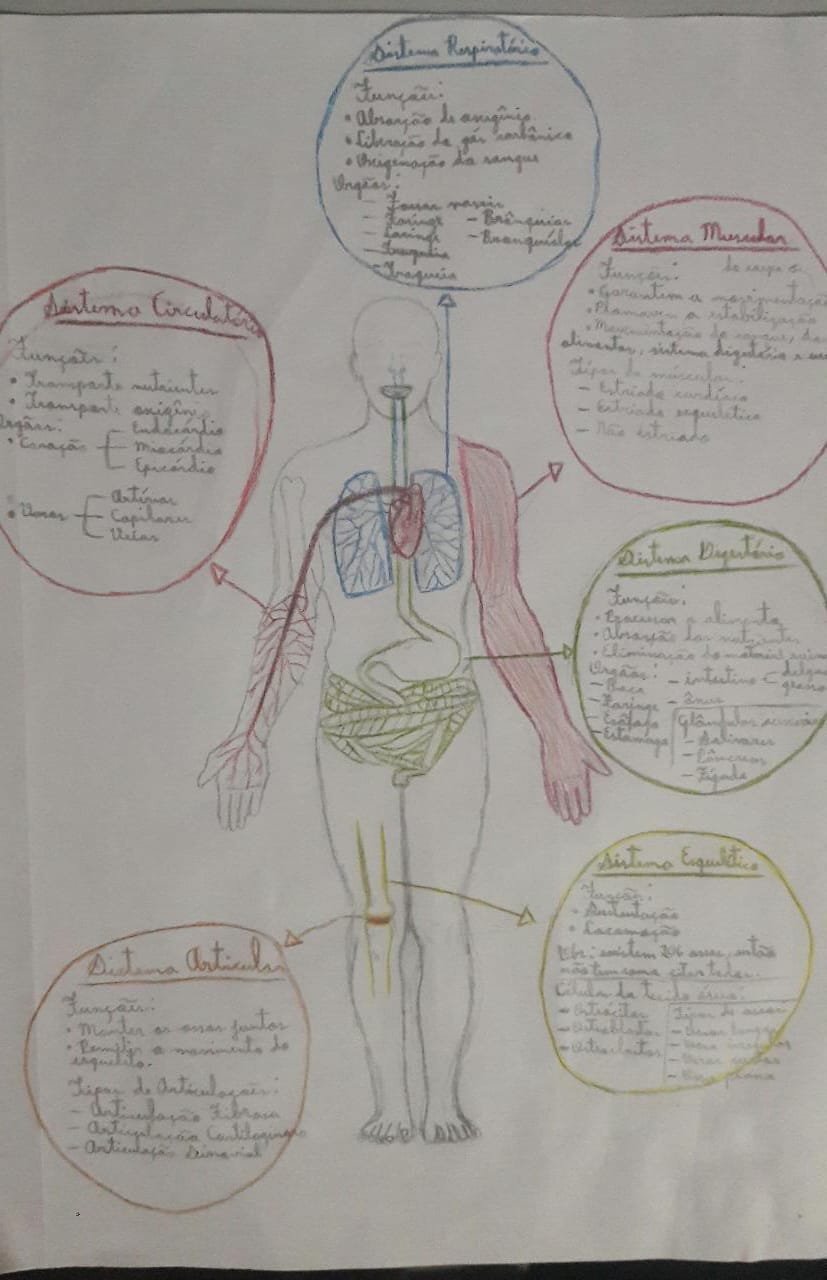 Sistema Respiratório
Funções:
• Absorção de oxigênio
• Liberação da gás carbônico
• Oxigenação da sangue
Orgãos:
- Fossas nasais
- Faringe - Brônquios
- Laringe - Bronquíolos
- Traqueia
- Traqueia
Sistema Muscular
Funções: do corpo
• Garantem a movimentação
• Promovem a estabilização
• Movimentação do sangue, dos
alimentos, sistema digestório e
Tipos de músculos:
- Estriado cardíaco
- Estriado esquelético
- Não estriado
Sistema Circulatório
Funções:
• Transporte nutrientes
• Transporte oxigên
Orgãos:
• Coração - Endocárdio
- Miocárdio
- Epicárdio
• Vasos - Artérias
- Capilares
- Veias
Sistema Digestório
Funções:
• Processar o alimento
• Absorção dos nutrientes
• Eliminação do material
Orgãos: - intestino delga
- Boca grosso
- Faringe - ânus
- Esôfago Glândulas
- Estômago - Salivares
- Pâncreas
- Fígado
Sistema Esquelético
Funções:
• Sustentação
• Locomoção
Obs: existem 206 ossos, então
não tem como citar todos.
Células do tecido ósseo:
- Osteócitos Tipos de ossos:
- Osteoblastos - Ossos longos
- Osteoclastos - Ossos
- Ossos curtos
- Osso plana
Sistema Articular
Funções:
• Manter os ossos juntos
• Permitir o movimento do
esqueleto.
Tipos de Articulações:
- Articulação Fibrosa
- Articulação Cartilaginosa
- Articulação Sinovial